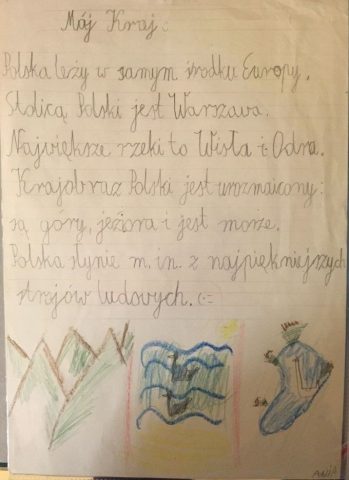 Mój Kraj:
Polska leży w samym środku Europy.
Stolicą Polski jest Warszawa.
Największe rzeki to Wisła i Odra.
Krajobraz Polski jest urozmaicony:
są góry, jeziora i jest morze.
Polska słynie m. in. z najpiękniejszych
strojów ludowych. (:
ANIA